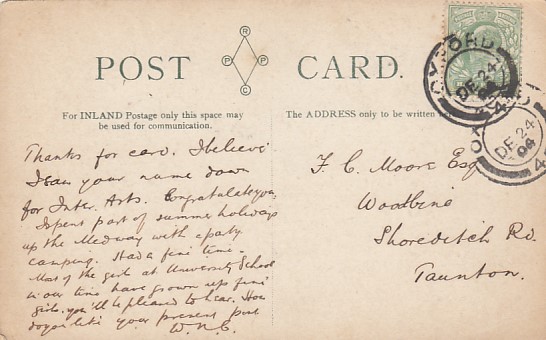 POST CARD.
R
P P
C
For INLAND Postage only this space may
be used for communication.
The ADDRESS only to be written here
OXFORD
DE 24
4
OXFORD
DE 24
06
4
Thanks for card. I believe
I saw your name down
for Inter. Arts. Congratulate you
I spent part of summer holidays
up the Medway with a party
camping. Had a fine time.
Most of the girls at University School
in our time have grown up fine
girls, you'll be pleased to hear. How
do you like your present post
W.N.C.
F. C. Moore Esq
Woodbine
Shoreditch Rd.
Taunton.